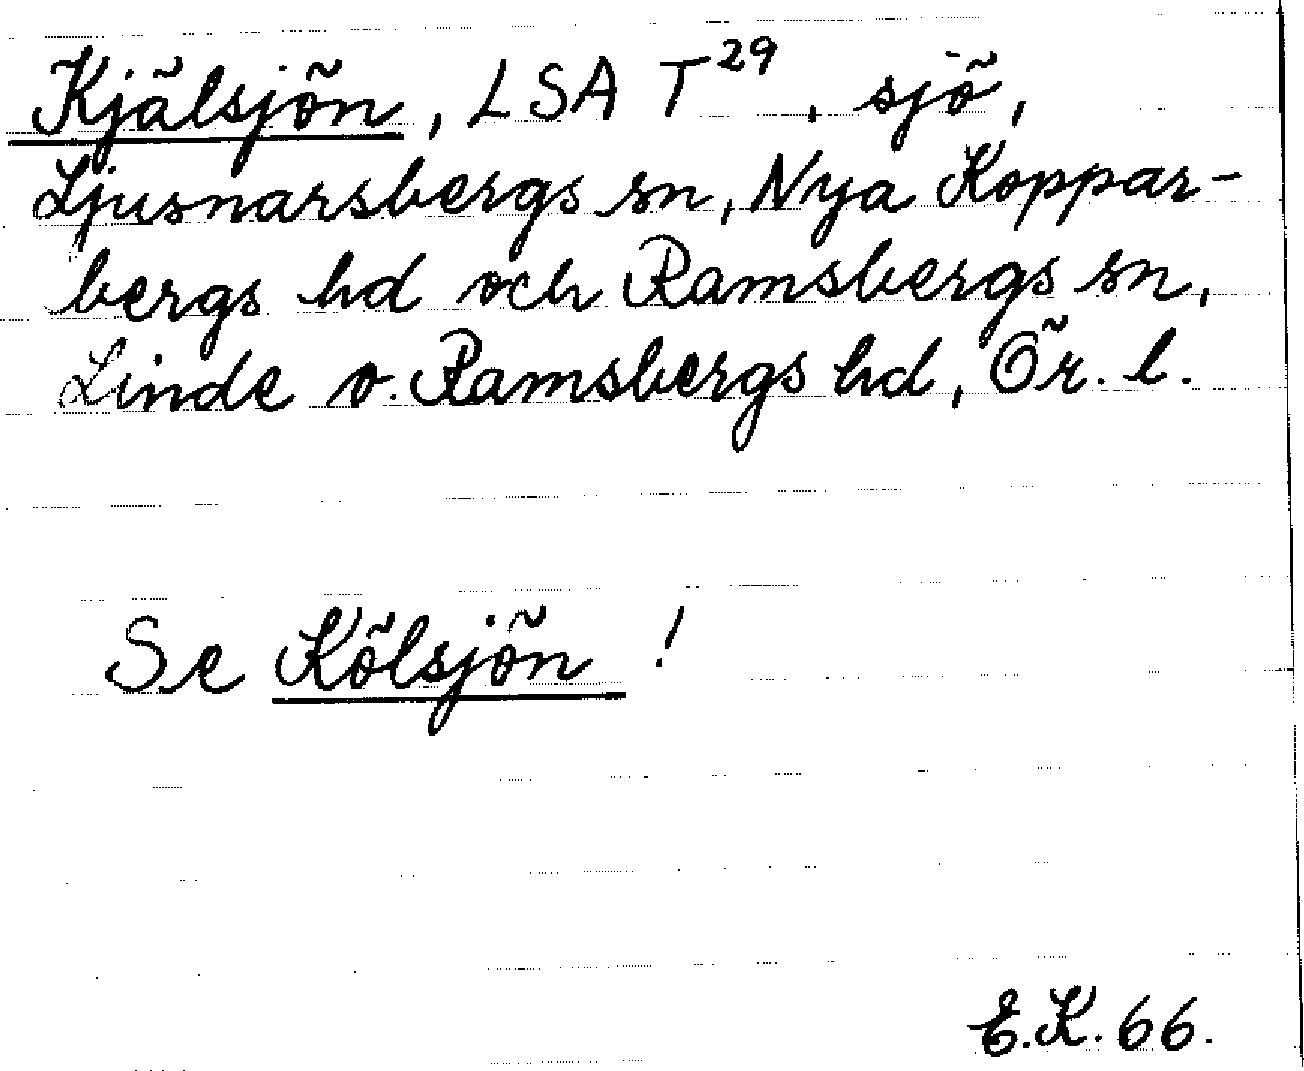 Kjälsjön, LSA T²⁹, sjö,
Ljusnarsbergs sn, Nya Koppar-
bergs hd och Ramsbergs sn,
Linde o. Ramsbergs hd, Ör. l.
Se Kölsjön !
E.K. 66.